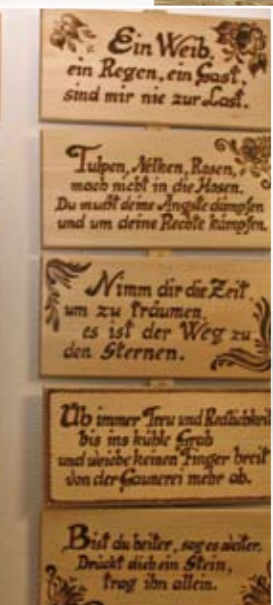 Ein Weib,
ein Regen, ein Gast,
sind mir nie zur Last.
Tulpen, Nelken, Rosen,
mach nicht in die Hosen.
Du mußt deine Ängste dämpfen
und um deine Rechte kämpfen.
Nimm dir die Zeit,
um zu träumen,
es ist der Weg zu
den Sternen.
Üb immer Treu und Redlichkeit
bis ins kühle Grab
und weiche keinen Finger breit
von der Gaunerei mehr ab.
Bist du heiter, sag es weiter.
Drückt dich ein Stein,
trag ihn allein.